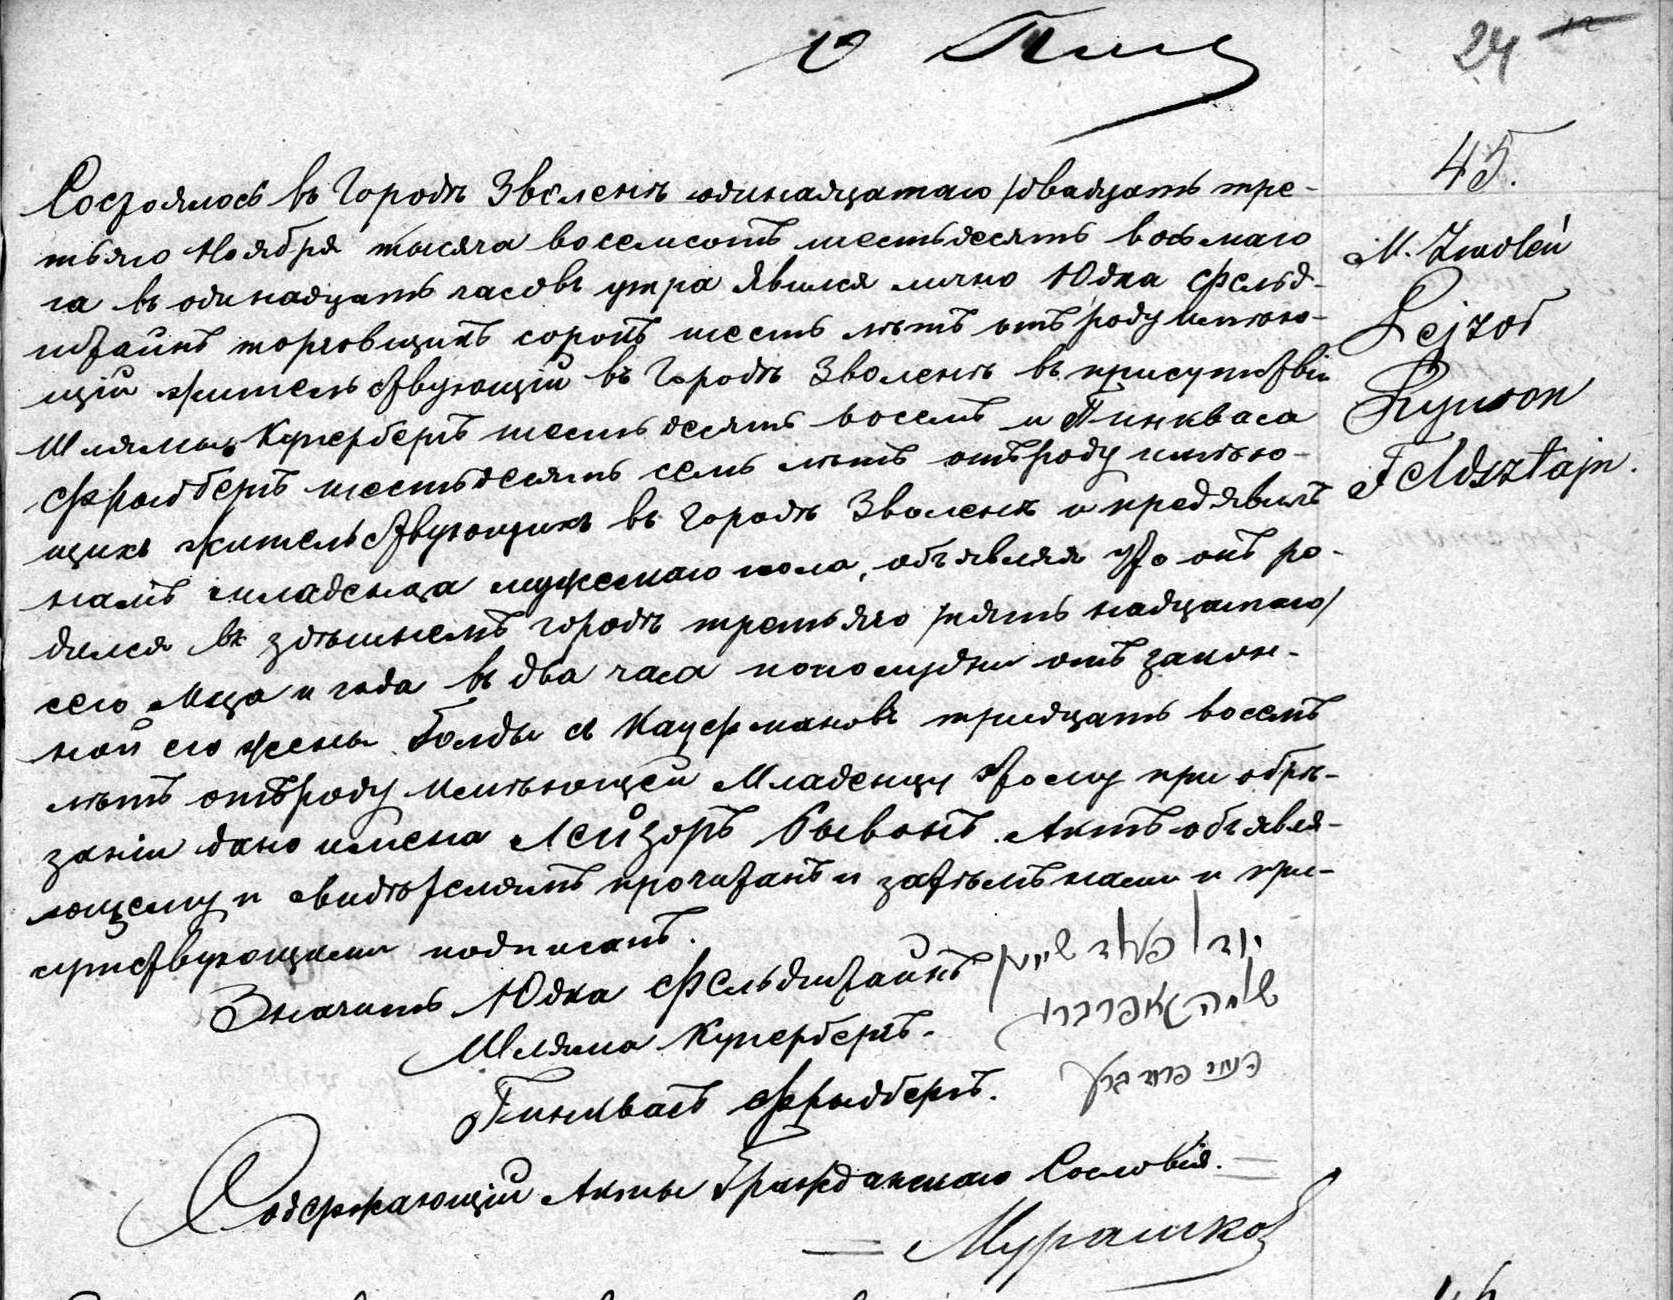 24
45.
M. Zwoleń
Lejzor
Rywon
Feldsztajn.
Состоялось въ Городѣ Зволенѣ одинадцатаго /двадцать тре-
тьяго Ноября тысяча восемсотъ шестьдесятъ восьмаго
га въ одинадцать часовъ утра явился лично Юдка Фельд-
штайнъ торговщикъ сорокъ шесть лѣтъ отъ роду имѣю-
щій жительствующій въ Городѣ Зволенѣ въ присутствіи
Шлямы Купербергъ шестьдесятъ восемъ и Пинкваса
Фрыдбергъ шестьдесятъ семь лѣтъ отъ роду имѣю-
щихъ жительствующихъ въ Городѣ Зволенѣ и предявилъ
намъ младенца мужескаго пола, объявляя что онъ ро-
дился въ здѣшнемъ городѣ третьяго /пятьнадцатаго/
сего Мца и года въ два часа пополудни отъ закон-
ной его жены Голды съ Кауфмановъ тридцать восемъ
лѣтъ отъ роду имѣющей Младенцу этому при обрѣ-
заніи дано имена Лейзоръ Рывонъ. Актъ объявля-
ющему и свидѣтелямъ прочитанъ и затѣмъ нами и при-
сутствующими подписанъ.
Значитъ Юдка Фельдштайнъ
Шляма Куперберъ.
Пинквасъ Фрыдбергъ.
Содержающій Акты Гражданскаго Сословія.
Мурашко